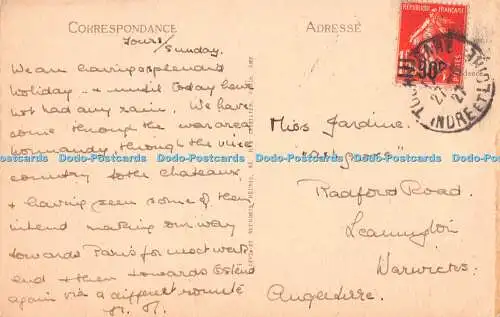 CORRESPONDANCE
ADRESSE
Tours
Sunday.
We are having a splendid
holiday - & until today have
not had any rain. We have
come through the war area
Normandy, through the
country to the chateaux,
& having seen some of them
intend making our way
towards Paris for next week
end & then towards Ostend
again via a different route
Miss Jardine.
Radford Road.
Leamington
Warwicks.
Angleterre.
REPUBLIQUE FRANÇAISE
POSTES
INDRE ET LOIRE
Dodo-Postcards Dodo-Postcards Dodo-Postcards Dodo-Postcards Dodo-Postcards